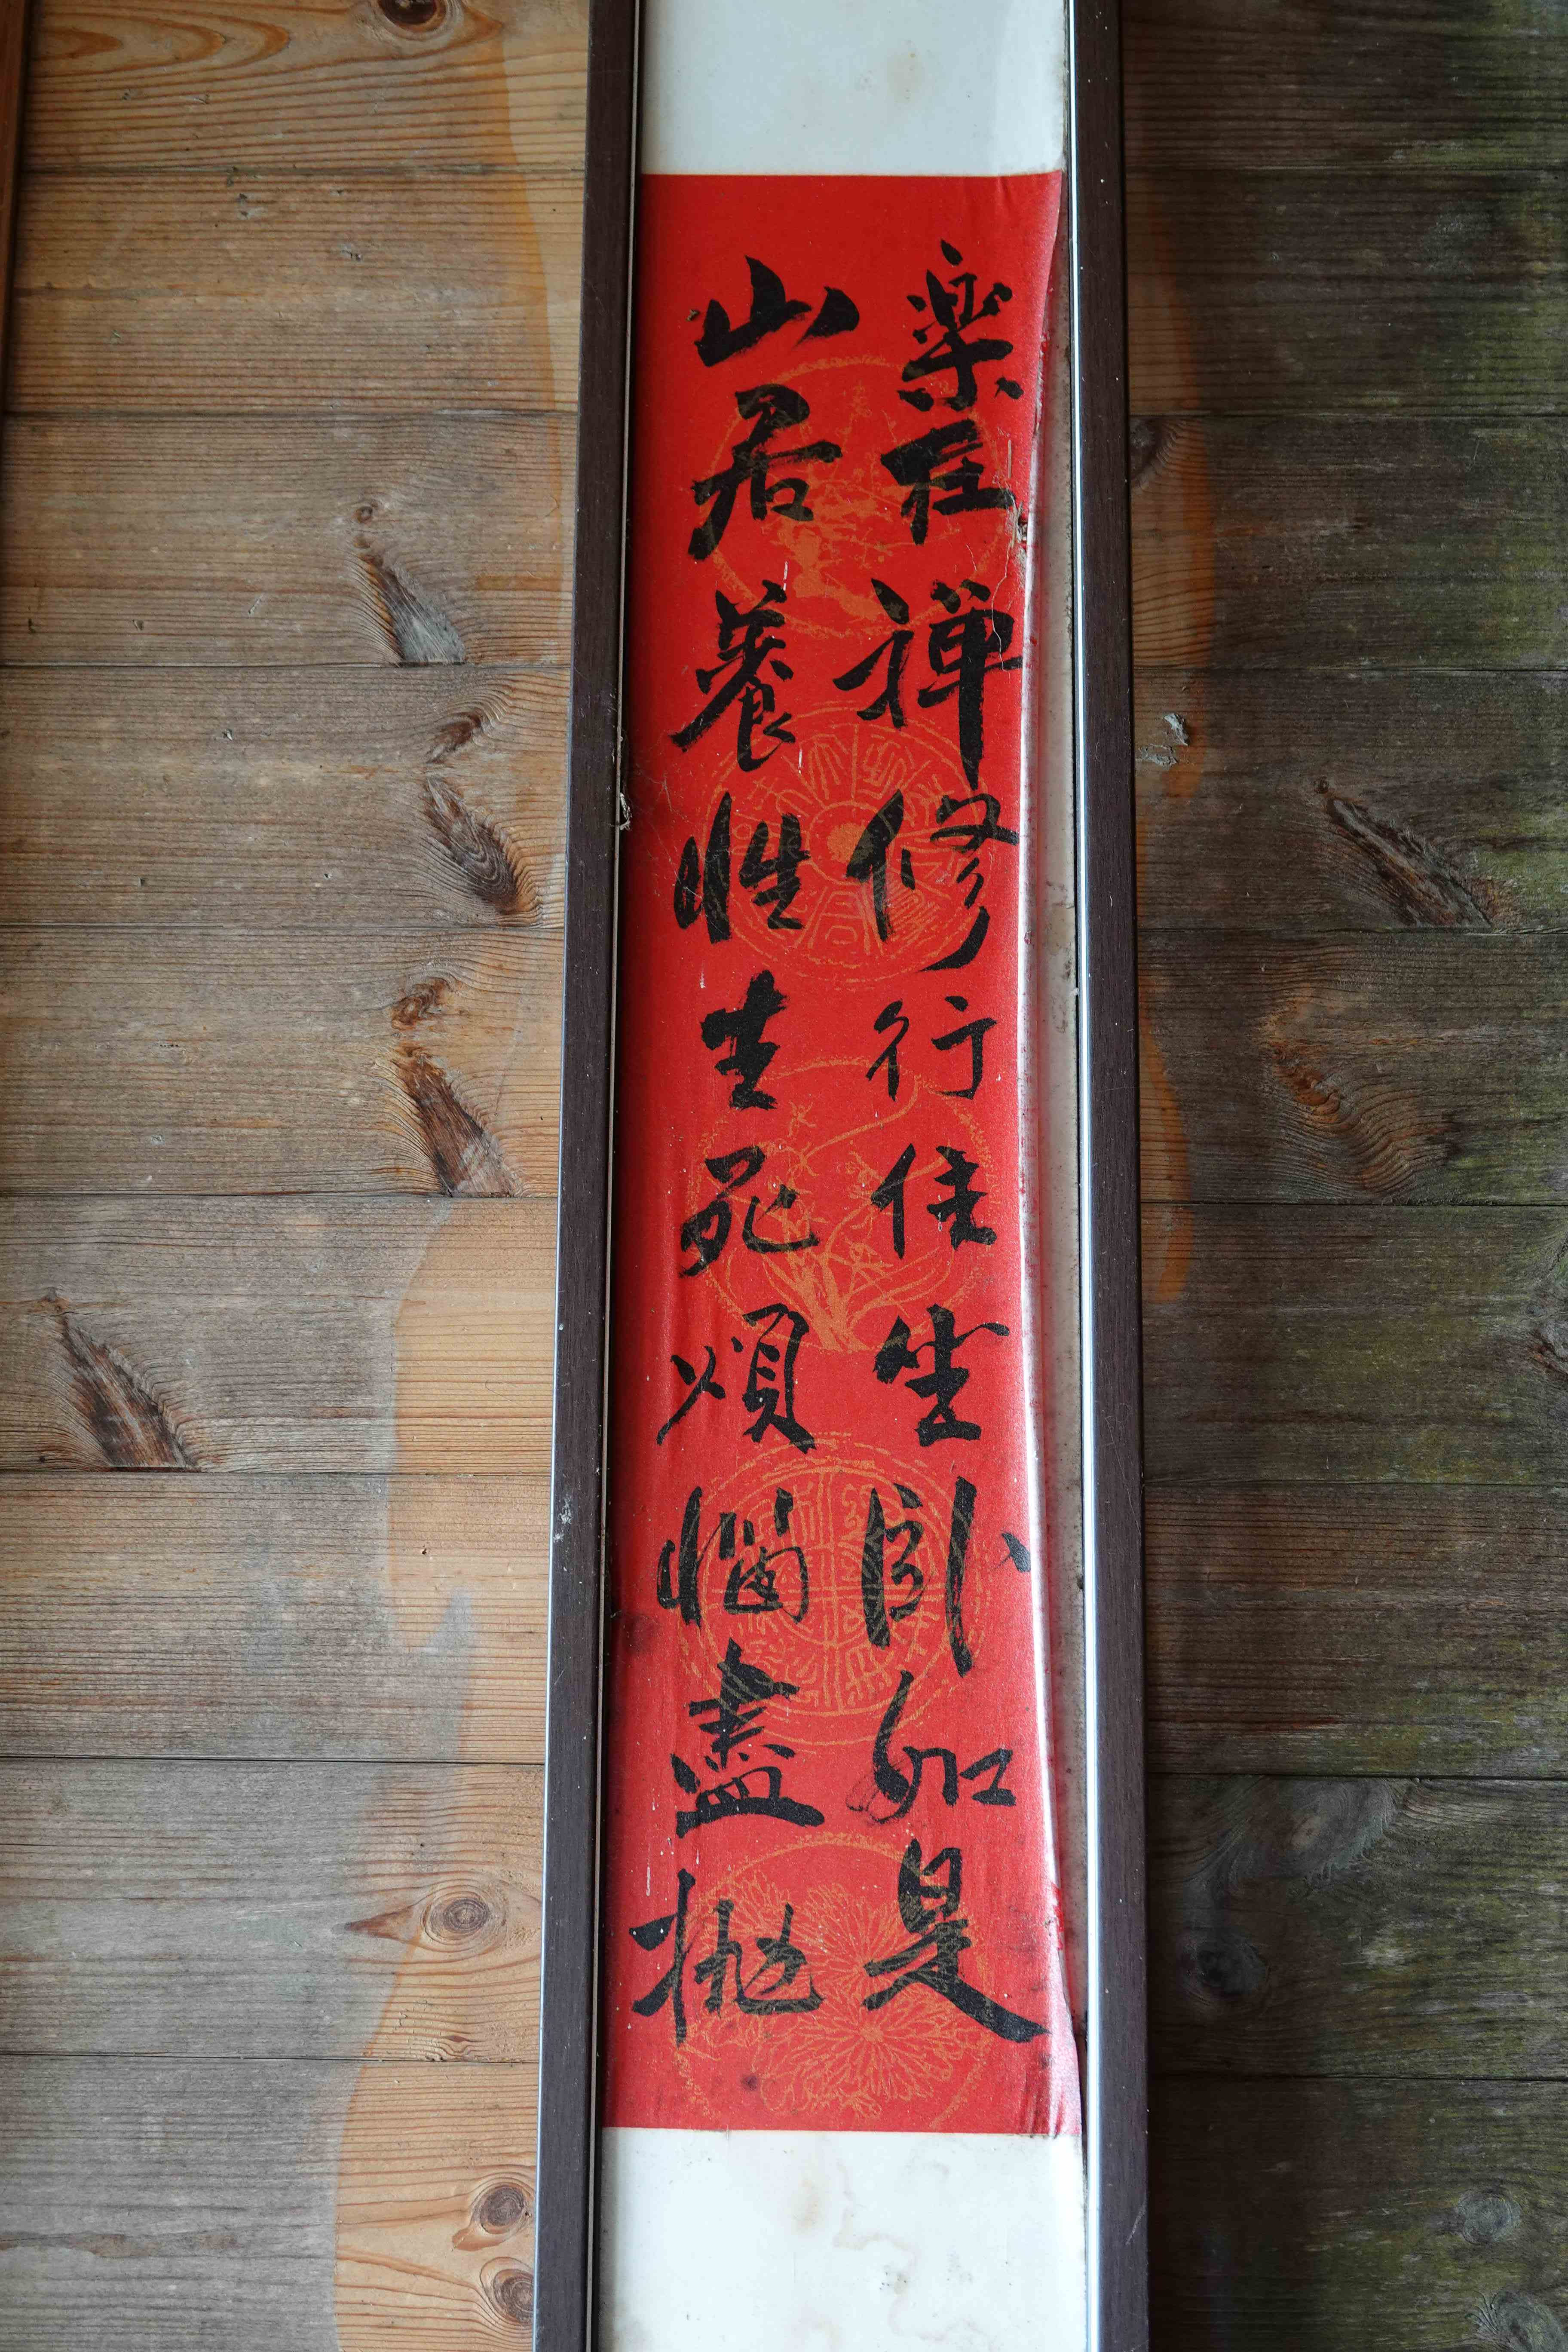 楽在禅修行住坐卧如是
山居養性生死煩惱盡拋